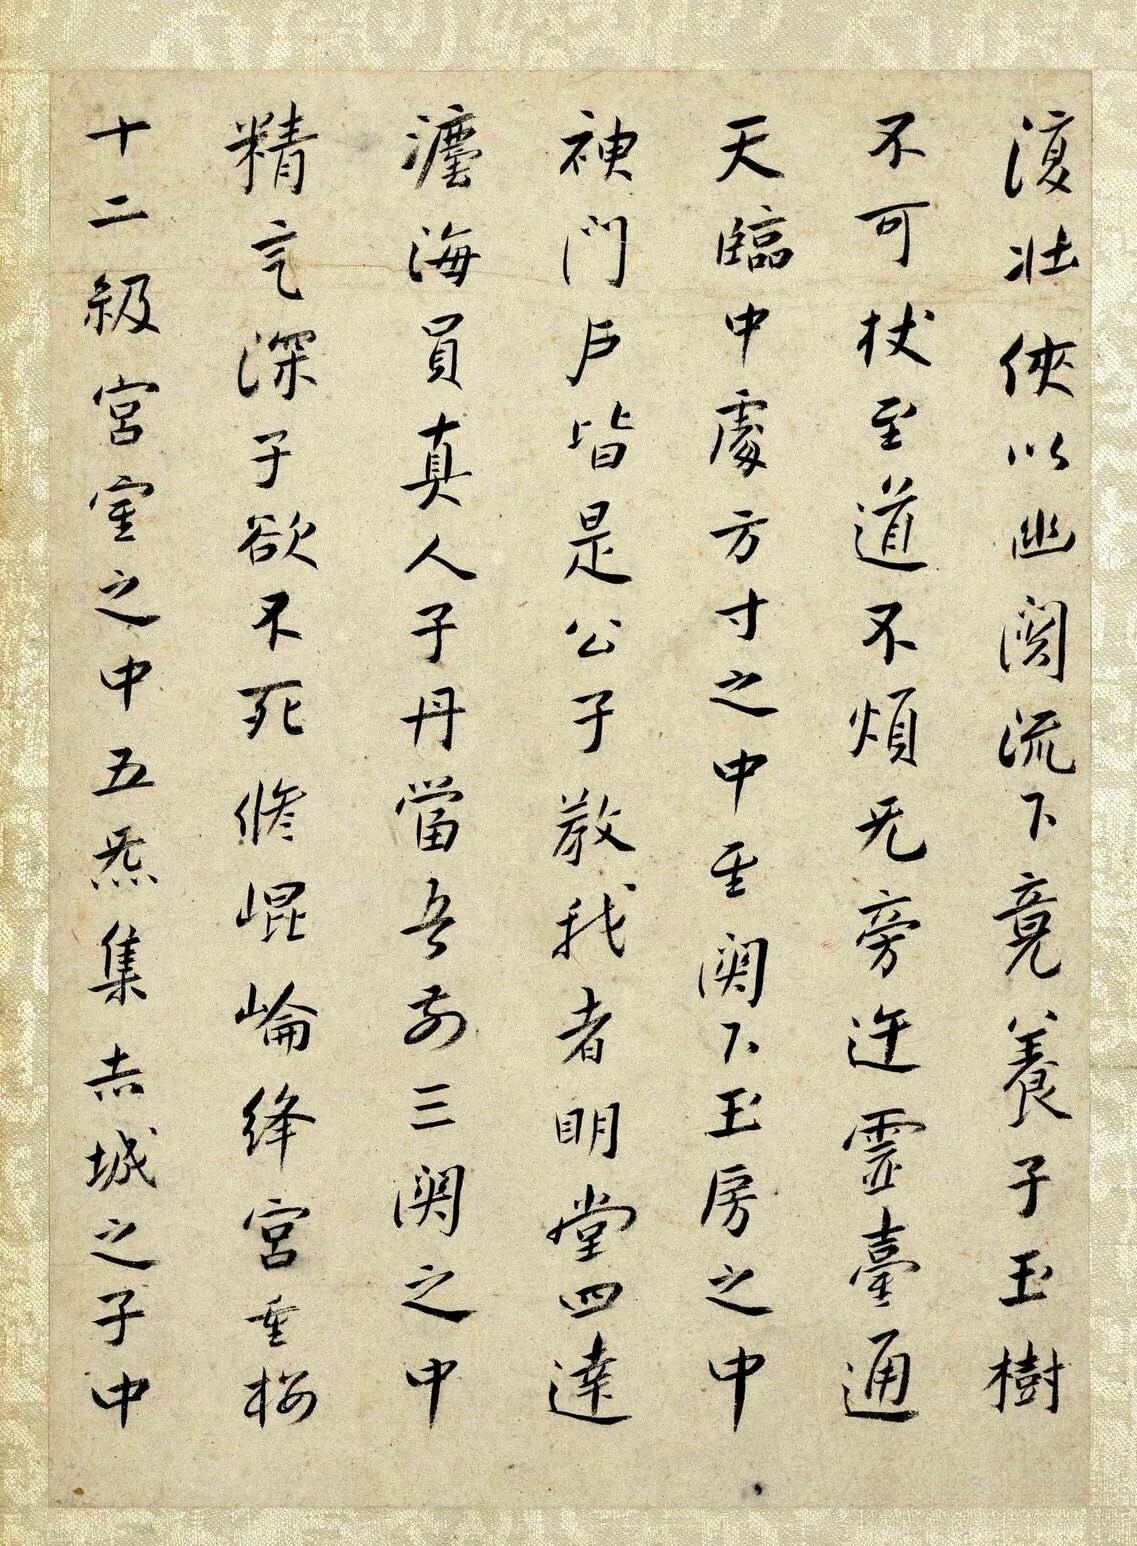 復壮俠以幽闕流下竟養子玉樹
不可杖至道不煩无旁迕靈臺通
天臨中處方寸之中至闕下玉房之中
神門戶皆是公子教我者明堂四達
瀍海員真人子丹當吾前三闕之中
精氣深子欲不死脩崐崘絳宮重樓
十二級宮室之中五炁集赤城之子中